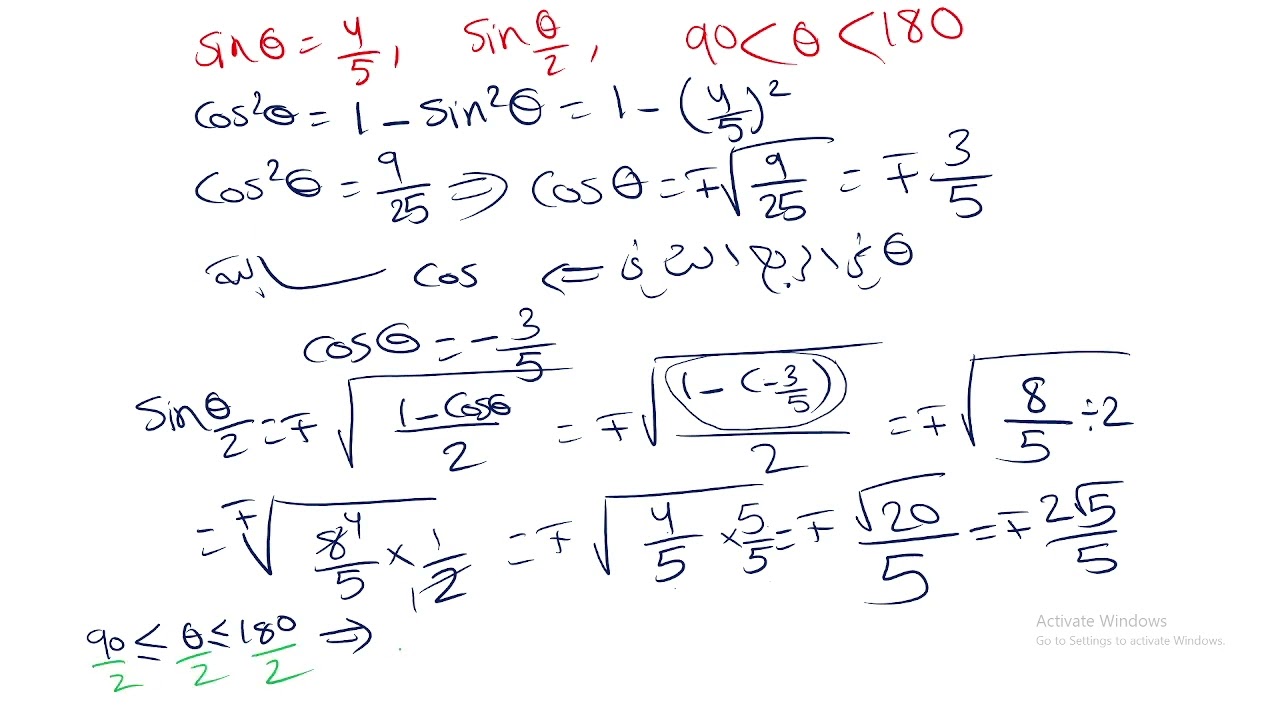 sin θ = 4/5 , sin θ/2 , 90 < θ < 180
cos²θ = 1 - sin²θ = 1 - (4/5)²
cos²θ = 9/25 ⇒ cos θ = ∓√(9/25) = ∓ 3/5
θ في الربع الثاني ⇐ cos سالبة
cos θ = - 3/5
sin θ/2 = ∓ √((1 - cos θ)/2) = ∓ √((1 - (-3/5))/2) = ∓ √(8/5 ÷ 2)
= ∓ √(8/5 × 1/2) = ∓ √(4/5 × 5/5) = ∓ √20/5 = ∓ 2√5/5
90/2 ≤ θ/2 ≤ 180/2 ⇒
Activate Windows
Go to Settings to activate Windows.